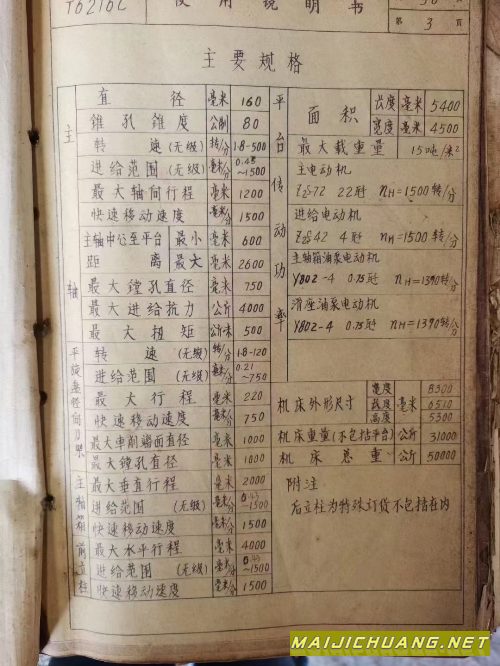 T6216C 使用说明书
第 3 页
主要规格
主轴
直径 毫米 160
锥孔锥度 公制 80
转速 (无级) 转/分 1.8-500
进给范围 (无级) 毫米/分 ~1500
最大轴向行程 毫米 1200
快速移动速度 毫米/分 1500
主轴中心至平台 最小 毫米 600
距离 最大 毫米 2600
最大镗孔直径 毫米 750
最大进给抗力 公斤 4000
最大扭矩 公斤·米 500
平旋盘径向刀架
转速 (无级) 转/分 1.8-120
进给范围 (无级) 毫米/分 0.21~750
最大行程 毫米 220
快速移动速度 毫米/分 750
最大车削端面直径 毫米 1000
最大镗孔直径 毫米 1000
主轴箱
最大垂直行程 毫米 2000
进给范围 (无级) 毫米/分 ~1500
快速移动速度 毫米/分 1500
前立柱
最大水平行程 毫米 4000
进给范围 (无级) 毫米/分 ~1500
快速移动速度 毫米/分 1500
平台
面积 长度 毫米 5400
宽度 毫米 4500
最大载重量 15吨/米²
传动功率
主电动机
Z₂-72 22瓩 nH=1500转/分
进给电动机
Z₂-42 4瓩 nH=1500转/分
主轴箱油泵电动机
Y802-4 0.75瓩 nH=1390转/分
滑座油泵电动机
Y802-4 0.75瓩 nH=1390转/分
机床外形尺寸 毫米
宽度 8300
长度 6510
高度 5300
机床重量(不包括平台) 公斤 31000
机床总重 公斤 50000
附注
后立柱为特殊订货不包括在内
MAIJICHUANG.NET